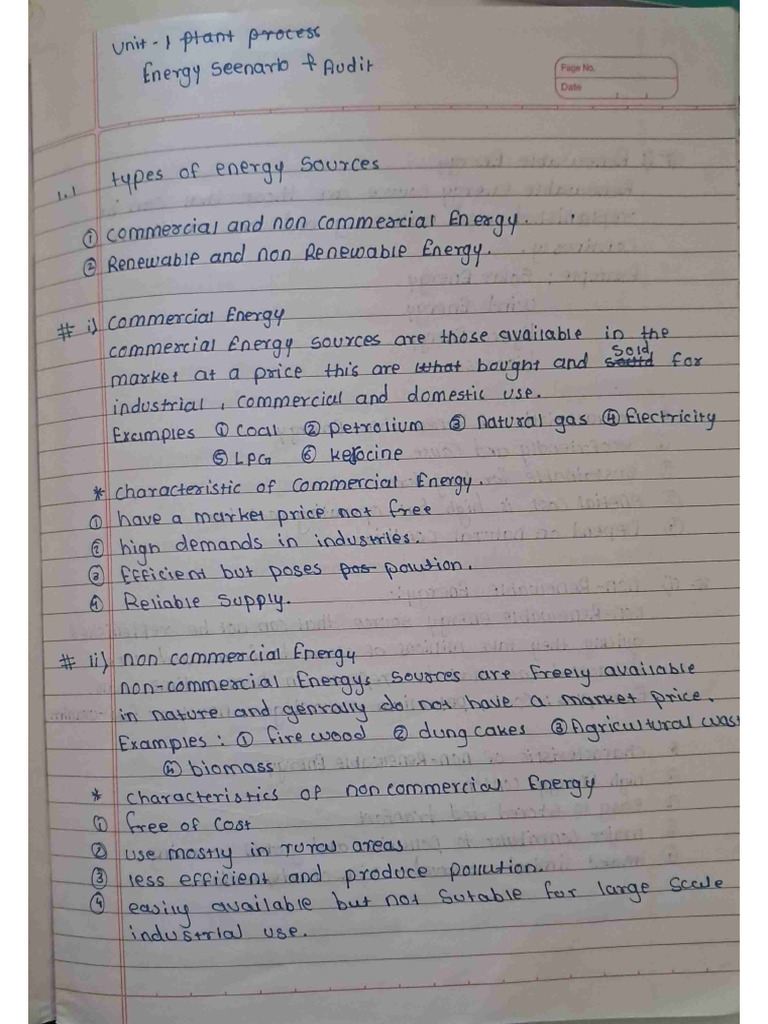 Unit - 1 Plant process
Energy Seenario & Audit
Page No.
Date
1.1 types of energy Sources
① commercial and non commercial Energy.
② Renewable and non Renewable Energy.
# i) commercial Energy
commercial Energy sources are those available in the
market at a price this are what bought and sold for
industrial, commercial and domestic use.
Examples ① coal ② petrolium ③ natural gas ④ Electricity
⑤ LPG ⑥ kerocine
* characteristic of commercial Energy.
① have a market price not free
② high demands in industries.
③ Efficient but poses pos polution.
④ Reliable Supply.
# ii) non commercial Energy
non-commercial Energys sources are freely available
in nature and genrally do not have a market price.
Examples : ① fire wood ② dung cakes ③ Agricultural was
④ biomass
* characteristics of non commercial Energy
① free of cost
② use mostly in rural areas
③ less efficient and produce pollution.
④ easily available but not sutable for large scale
industrial use.